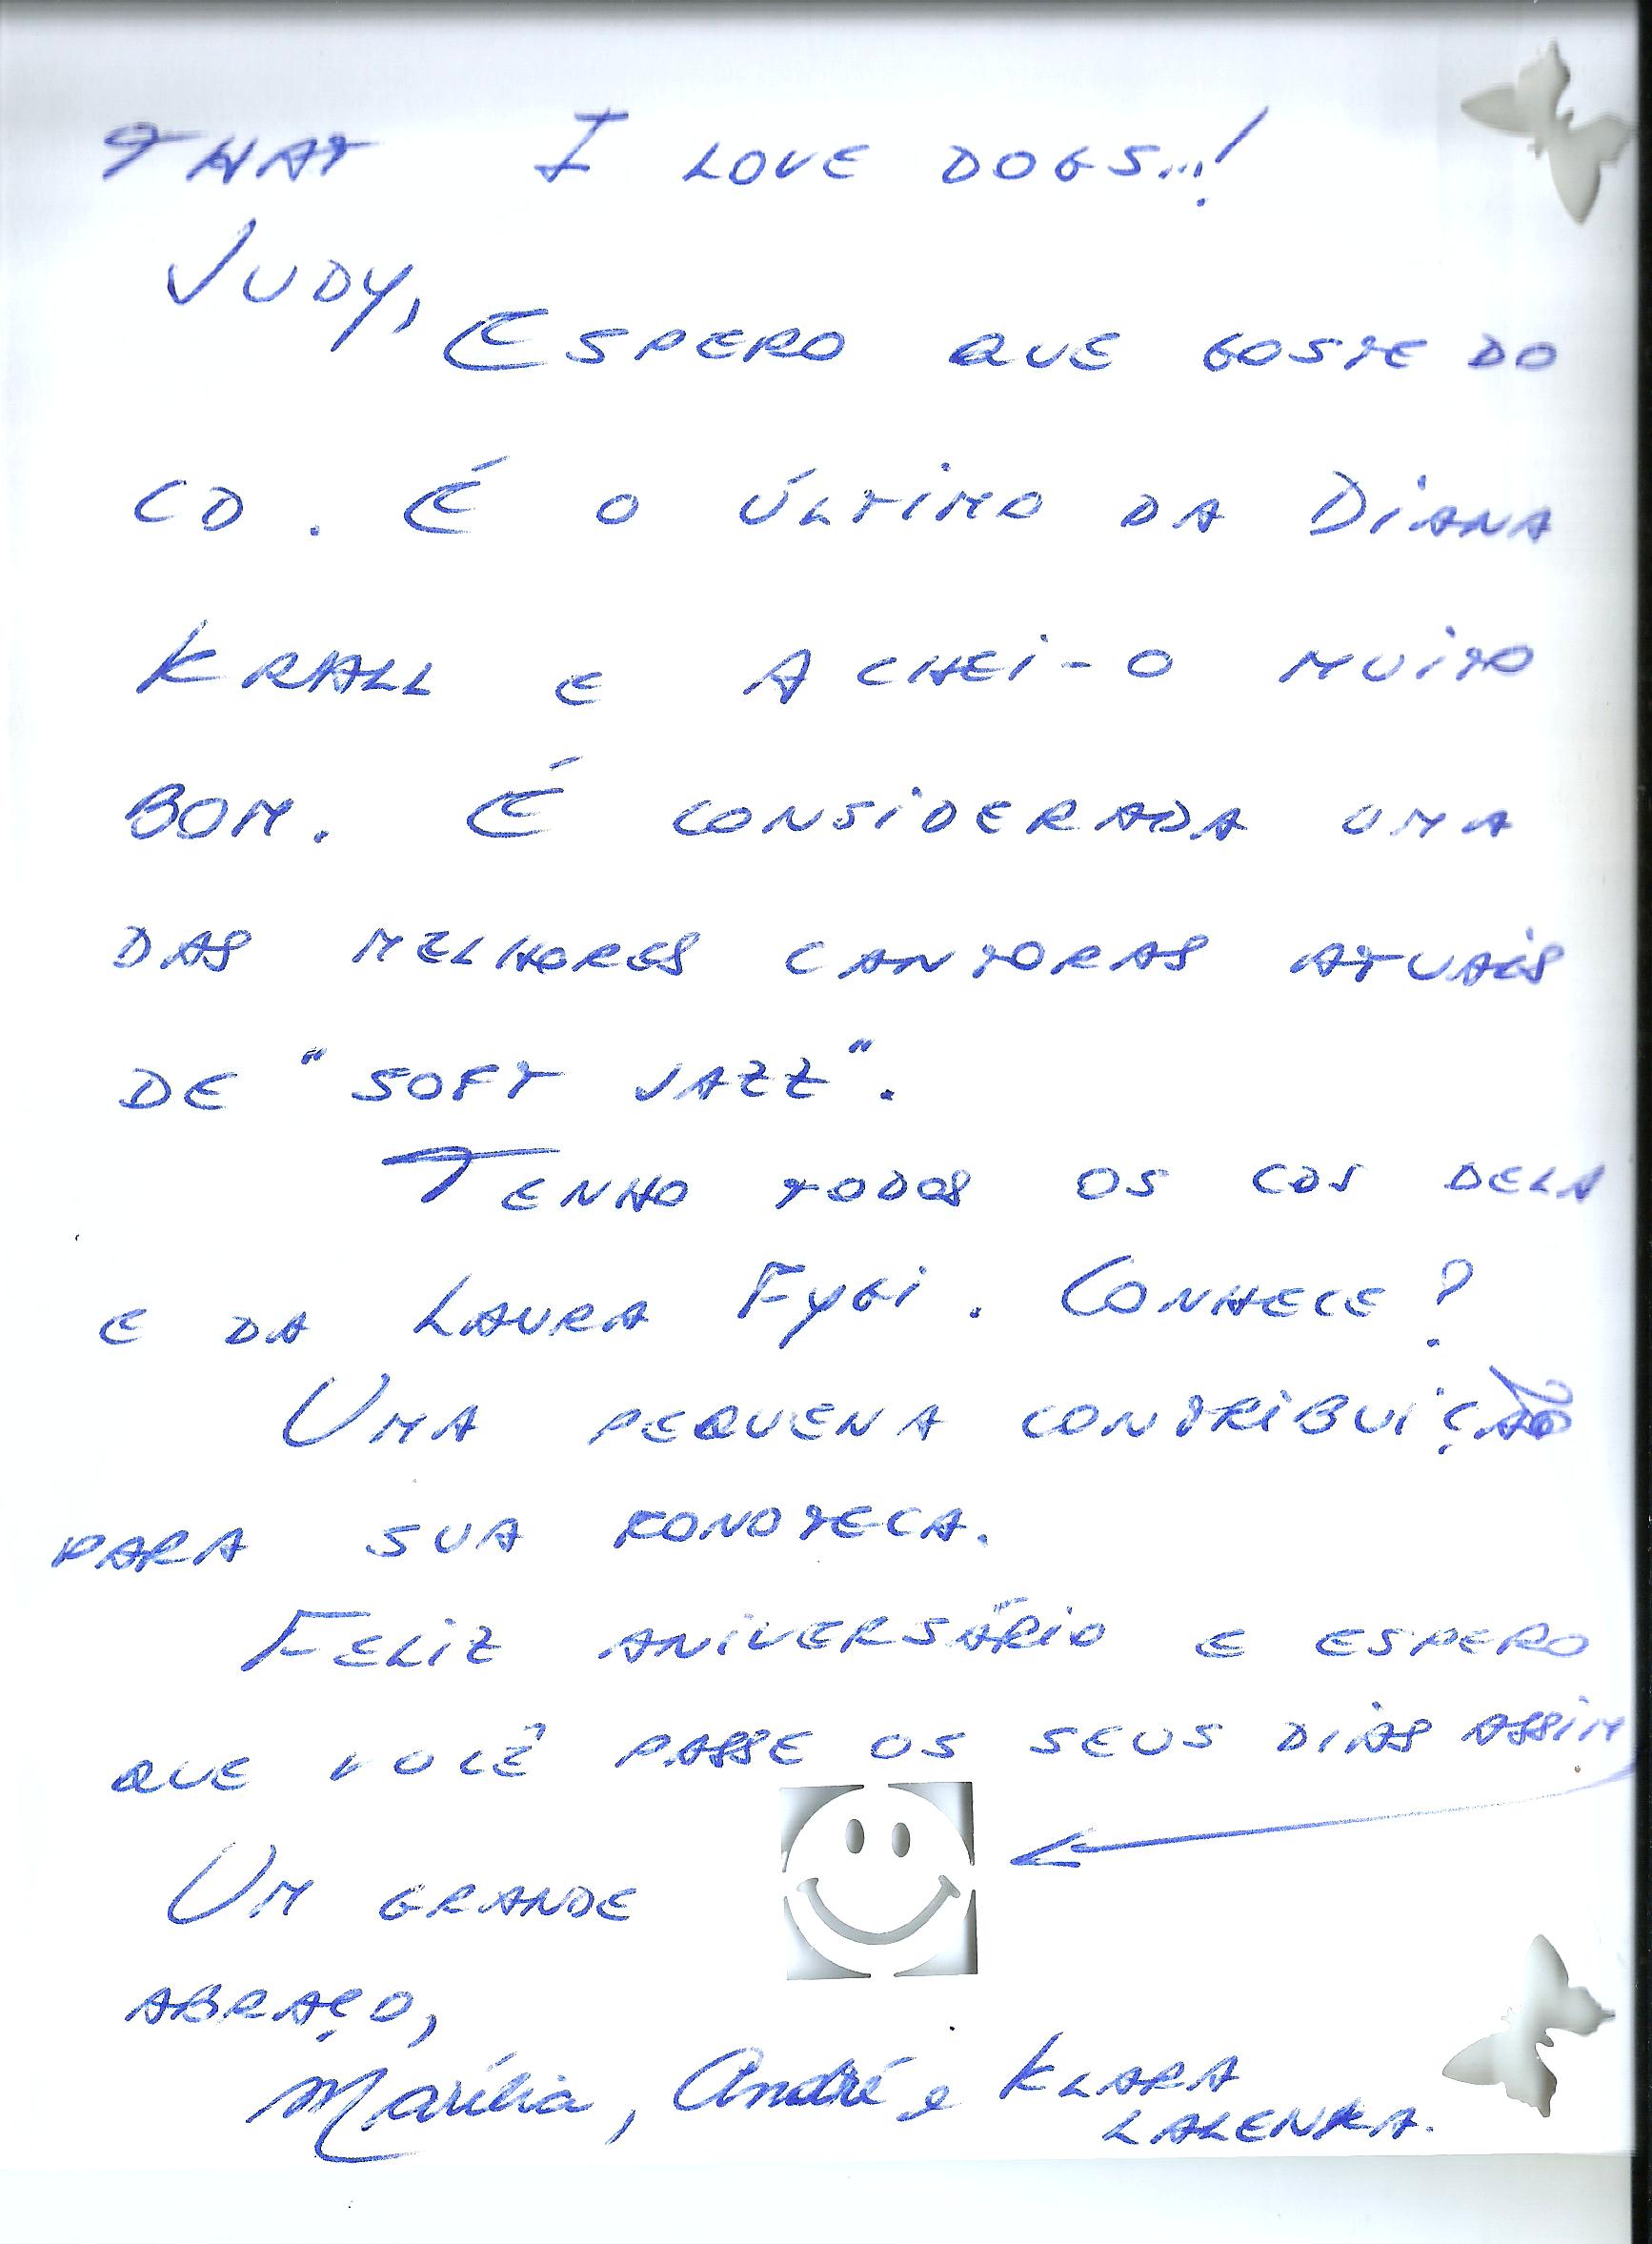 THAT I LOVE DOGS...!
JUDY,
ESPERO QUE GOSTE DO
CD. É O ÚLTIMO DA DIANA
KRALL E ACHEI-O MUITO
BOM. É CONSIDERADA UMA
DAS MELHORES CANTORAS ATUAIS
DE "SOFT JAZZ".
TENHO TODOS OS CDS DELA
E DA LAURA FYGI. CONHECE?
UMA PEQUENA CONTRIBUIÇÃO
PARA SUA FONOTECA.
FELIZ ANIVERSÁRIO E ESPERO
QUE VOCÊ PASSE OS SEUS DIAS ASSIM
UM GRANDE
ABRAÇO,
Marília, André e KLARA
LALENKA.